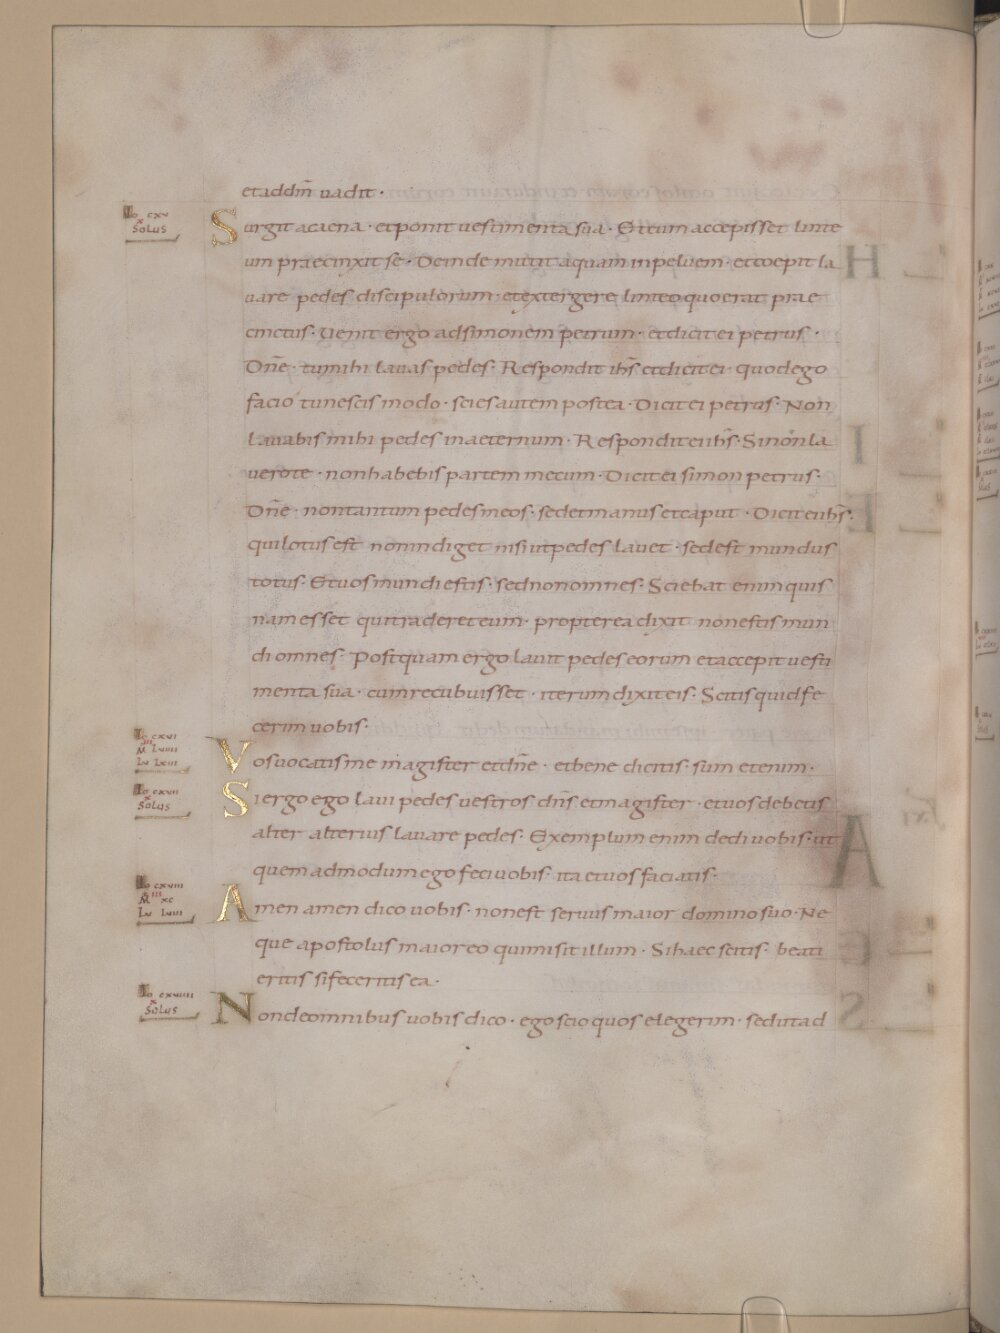 et addm̅ uadit ·
Io cxv
x
Solus
Surgit a caena · et ponit uestimenta sua · Et cum accepisset linte
um praecinxit se · Deinde mittit aquam in peluem · et coepit la
uare pedes discipulorum · et extergere linteo quo erat prae
cinctus · Uenit ergo ad simonem petrum · et dicit ei petrus ·
Dn̅e · tu mihi lauas pedes · Respondit ih̅s et dicit ei · quod ego
facio tu nescis modo · scies autem postea · Dicit ei petrus · Non
lauabis mihi pedes in aeternum · Respondit ei ih̅s · Si non la
uero te · non habebis partem mecum · Dicit ei simon petrus ·
Dn̅e · non tantum pedes meos · sed et manus et caput · Dicit ei ih̅s ·
qui lotus est non indiget nisi ut pedes lauet · sed est mundus
totus · Et uos mundi estis · sed non omnes · Sciebat enim quis
nam esset qui traderet eum · propterea dixit non estis mun
di omnes · Postquam ergo lauit pedes eorum et accepit uesti
menta sua · cum recubuisset · iterum dixit eis · Scitis quid fe
cerim uobis ·
Io cxvi
III
M Lviiii
Lu Lxiii
Vos uocatis me magister et dn̅e · et bene dicitis · sum etenim ·
Io cxvii
x
Solus
Si ergo ego laui pedes uestros dn̅s et magister · et uos debetis
alter alterius lauare pedes · Exemplum enim dedi uobis · ut
quem admodum ego feci uobis · ita et uos faciatis ·
Io cxviii
III
M xc
Lu Lviii
Amen amen dico uobis · non est seruus maior domino suo · Ne
que apostolus maior eo qui misit illum · Si haec scitis · beati
eritis si feceritis ea ·
Io cxviiii
x
Solus
Non de omnibus uobis dico · ego scio quos elegerim · sed ut ad